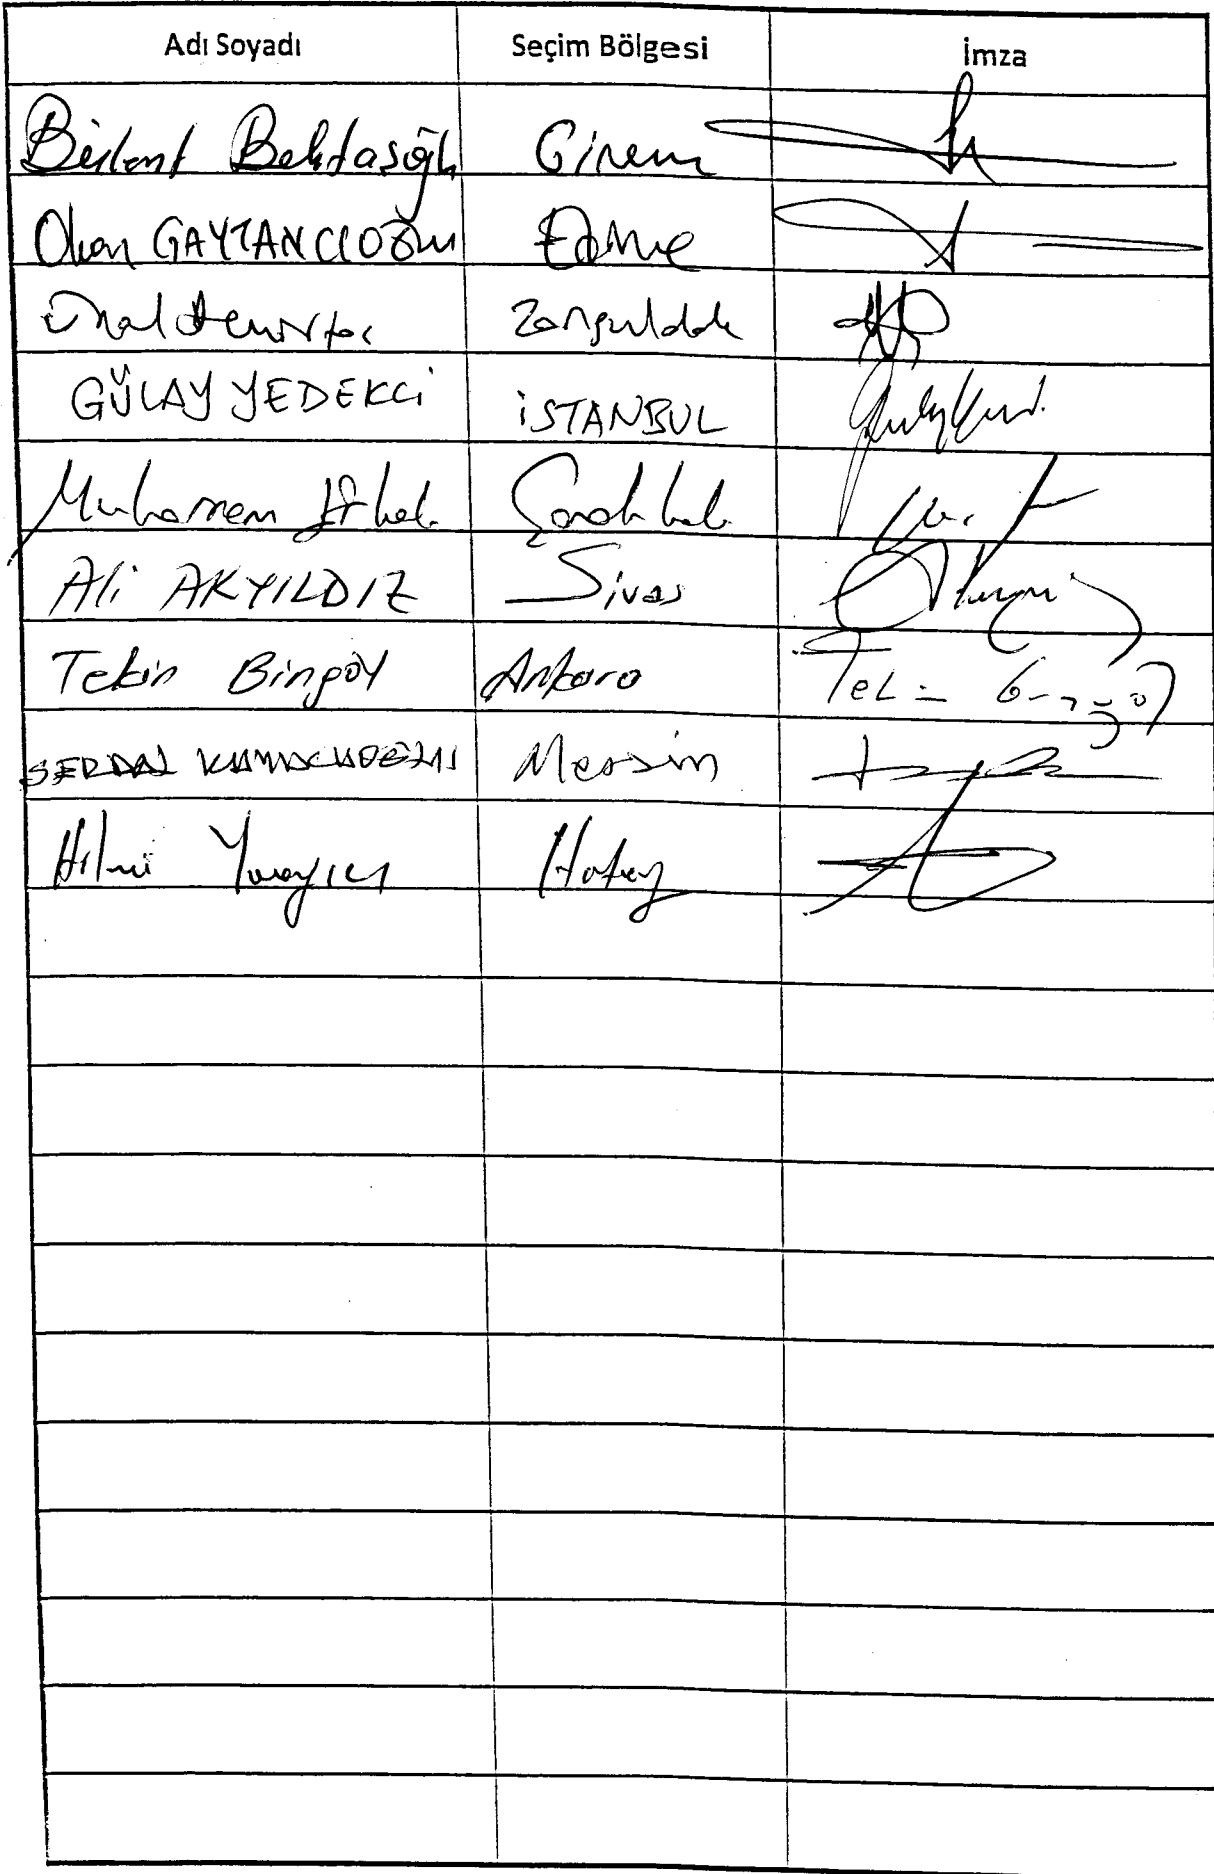 Adı Soyadı Seçim Bölgesi İmza
Bülent Bektaşoğlu Giresun
Okan GAYTANCIOĞLU Edirne
Ünal Demirtaş Zonguldak
GÜLAY YEDEKCİ İSTANBUL
Muharrem Erkek Çanakkale
Ali AKYILDIZ Sivas
Tekin Bingöl Ankara
SERDAL KUYUCUOĞLU Mersin
Hilmi Yarayıcı Hatay